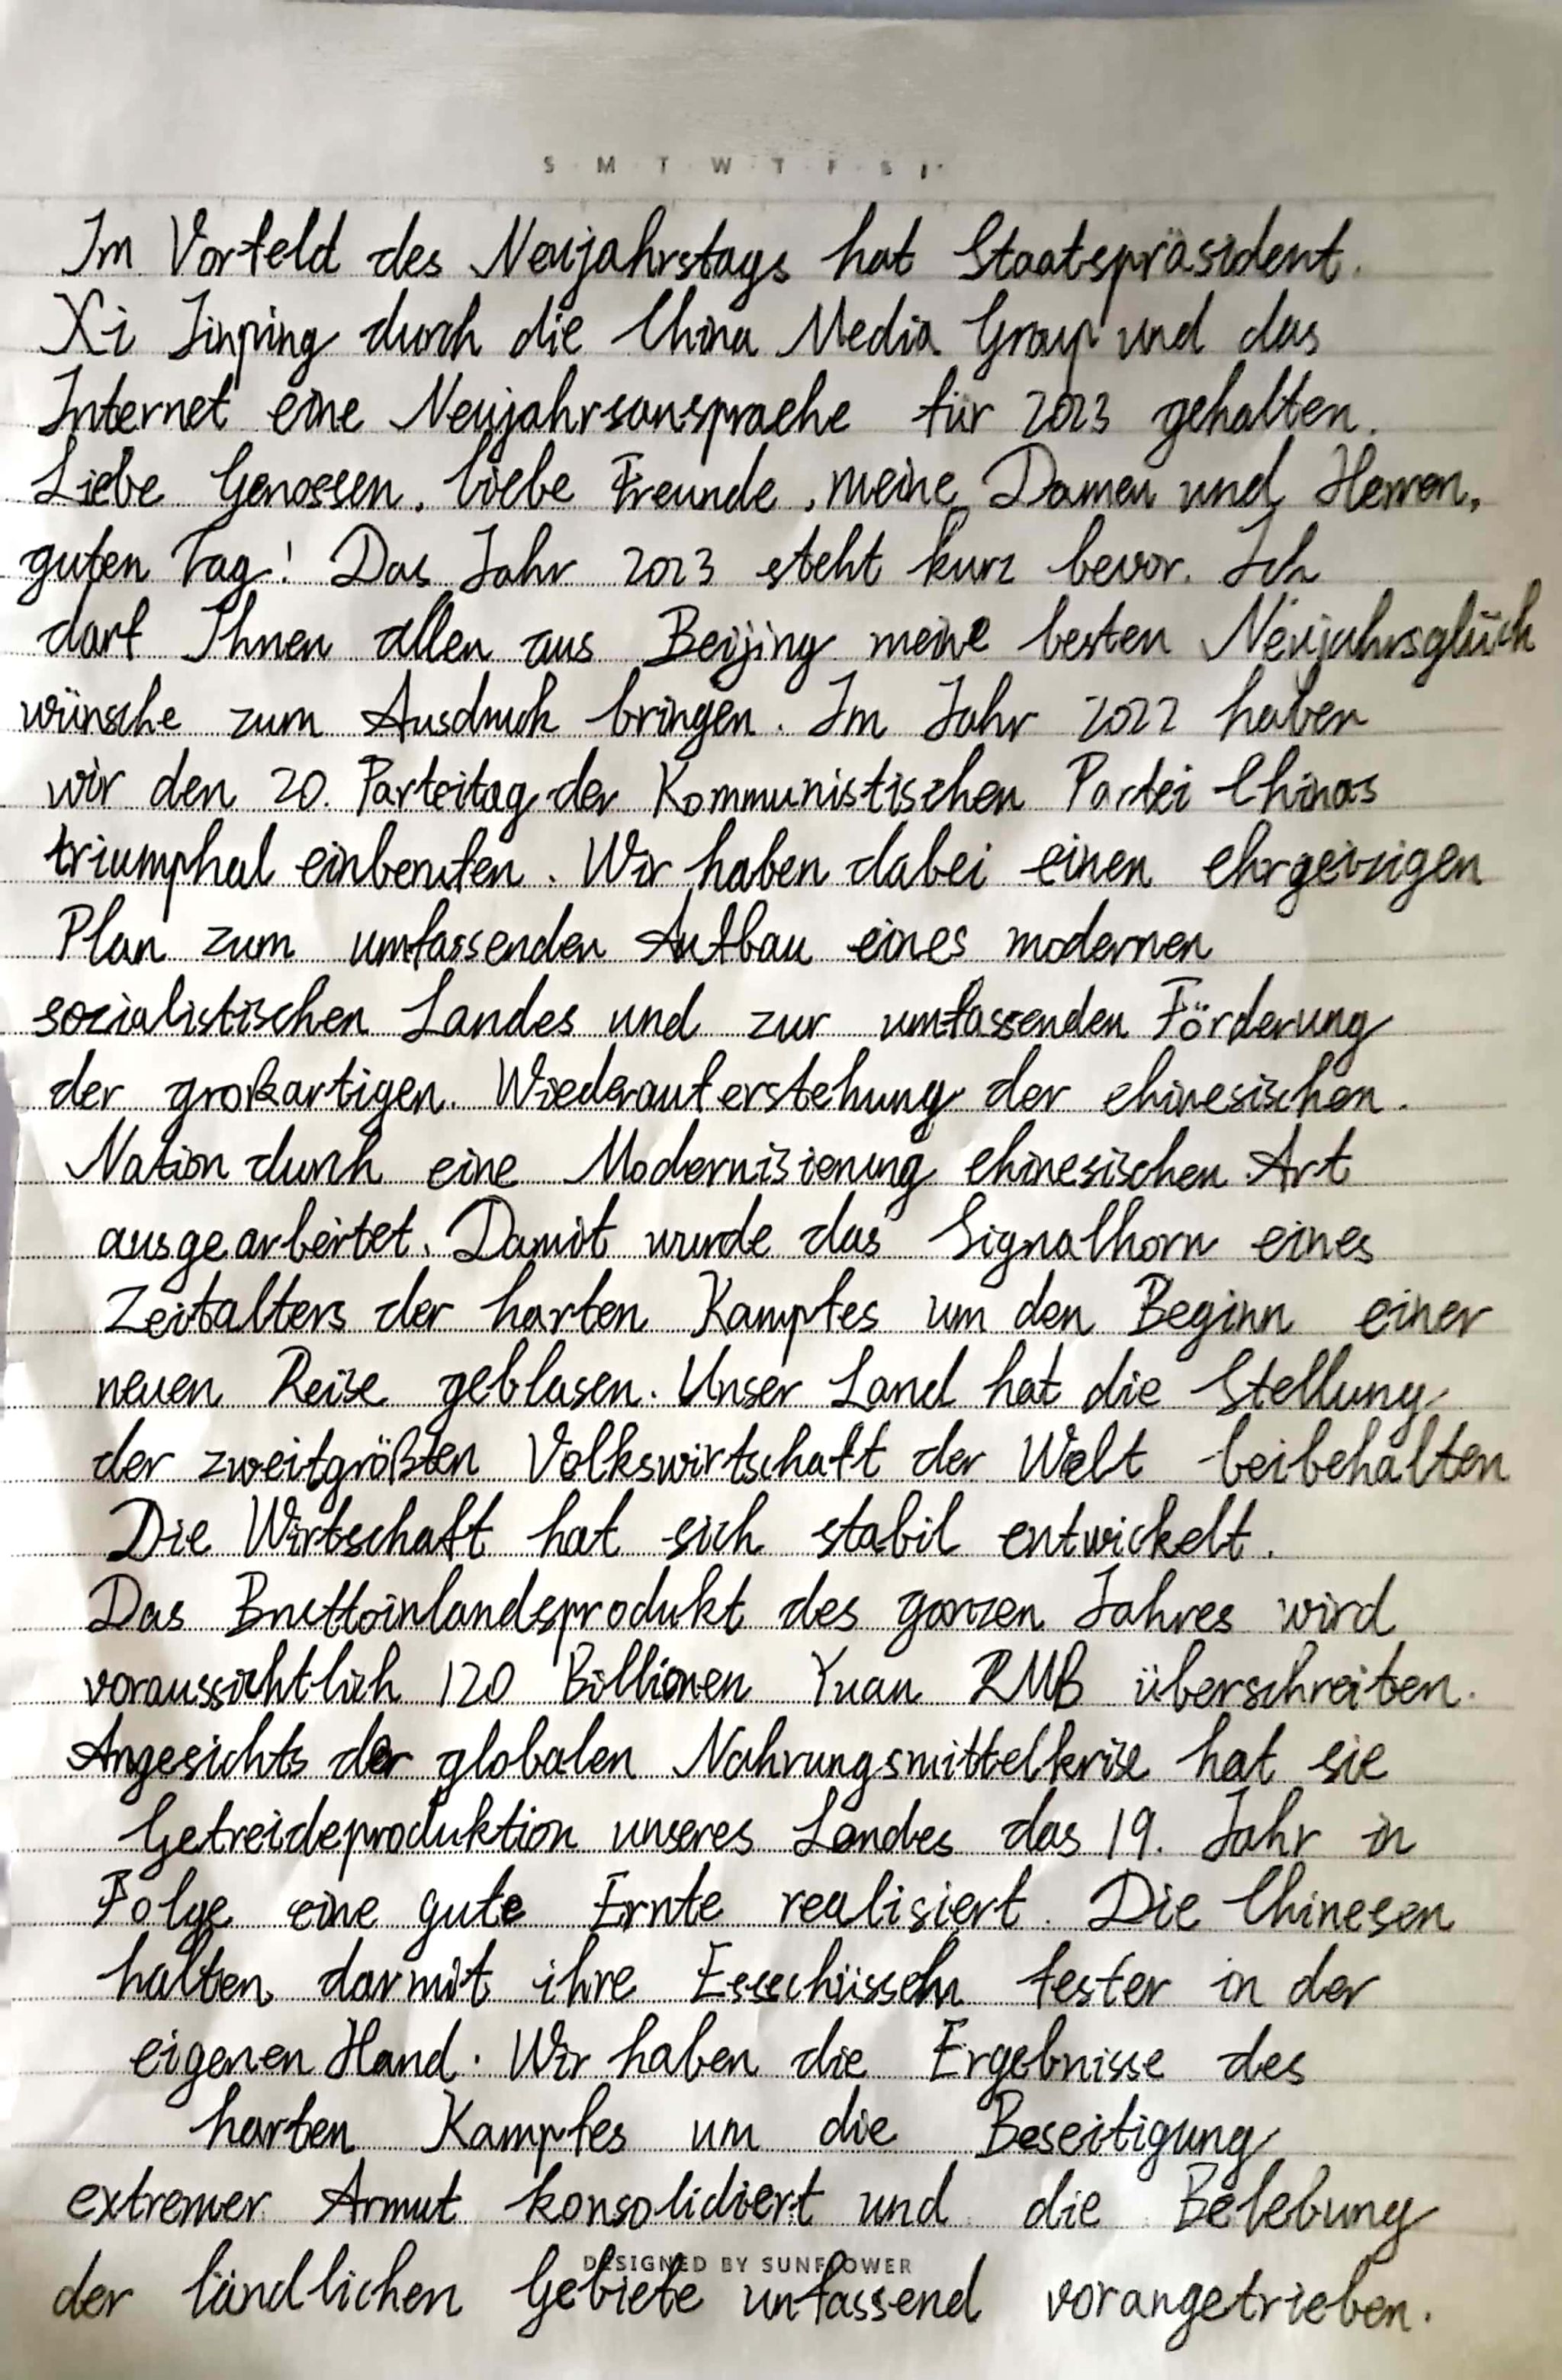 S M T W T F S
Im Vorfeld des Neujahrstags hat Staatspräsident
Xi Jinping durch die China Media Group und das
Internet eine Neujahrsansprache für 2023 gehalten.
Liebe Genossen, liebe Freunde, meine Damen und Herren,
guten Tag! Das Jahr 2023 steht kurz bevor. Ich
darf Ihnen allen aus Beijing meine besten Neujahrsglück
wünsche zum Ausdruck bringen. Im Jahr 2022 haben
wir den 20. Parteitag der Kommunistischen Partei Chinas
triumphal einberufen. Wir haben dabei einen ehrgeizigen
Plan zum umfassenden Aufbau eines modernen
sozialistischen Landes und zur umfassenden Förderung
der großartigen Wiederauferstehung der chinesischen
Nation durch eine Modernisierung chinesischen Art
ausgearbeitet. Damit wurde das Signalhorn eines
Zeitalters der harten Kampfes um den Beginn einer
neuen Reise geblasen. Unser Land hat die Stellung
der zweitgrößten Volkswirtschaft der Welt beibehalten
Die Wirtschaft hat sich stabil entwickelt.
Das Bruttoinlandsprodukt des ganzen Jahres wird
voraussichtlich 120 Billionen Yuan RMB überschreiten.
Angesichts der globalen Nahrungsmittelkrise hat sie
Getreideproduktion unseres Landes das 19. Jahr in
Folge eine gute Ernte realisiert. Die Chinesen
halten darmit ihre Essschüsseln fester in der
eigenen Hand. Wir haben die Ergebnisse des
harten Kampfes um die Beseitigung
extremer Armut konsolidiert und die Belebung
DESIGNED BY SUNFLOWER
der ländlichen Gebiete umfassend vorangetrieben.